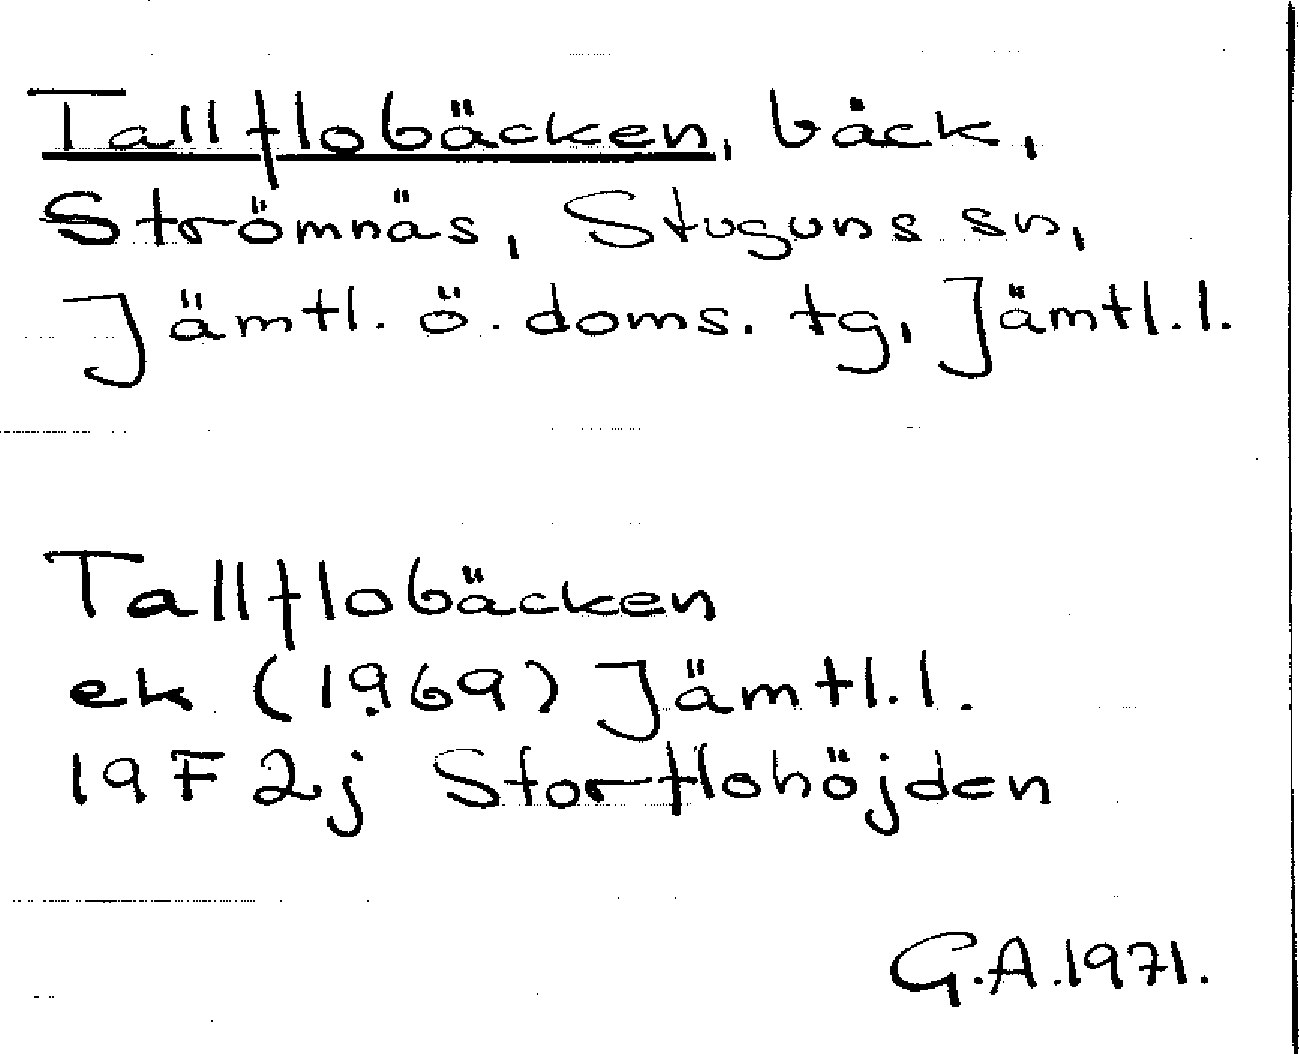 Tallflobäcken, bäck,
Strömnäs, Stuguns sn,
Jämtl. ö. doms. tg, Jämtl. l.
Tallflobäcken
ek (1969) Jämtl. l.
19 F 2j Storflohöjden
G.A. 1971.